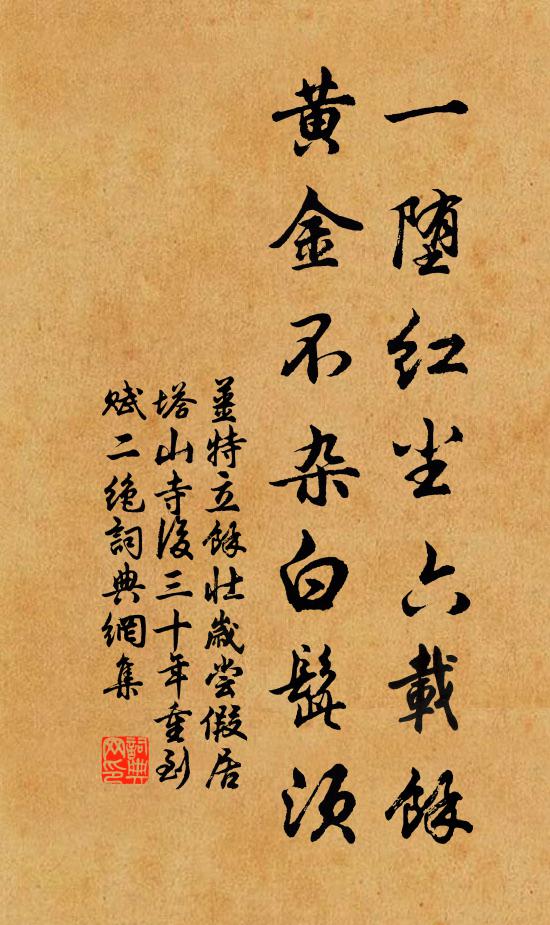 一堕红尘六載餘
黃金不杂白髭须
姜特立餘壯歲尝假居
塔山寺後三十年重到
赋二绝詞典網集
詞典网印